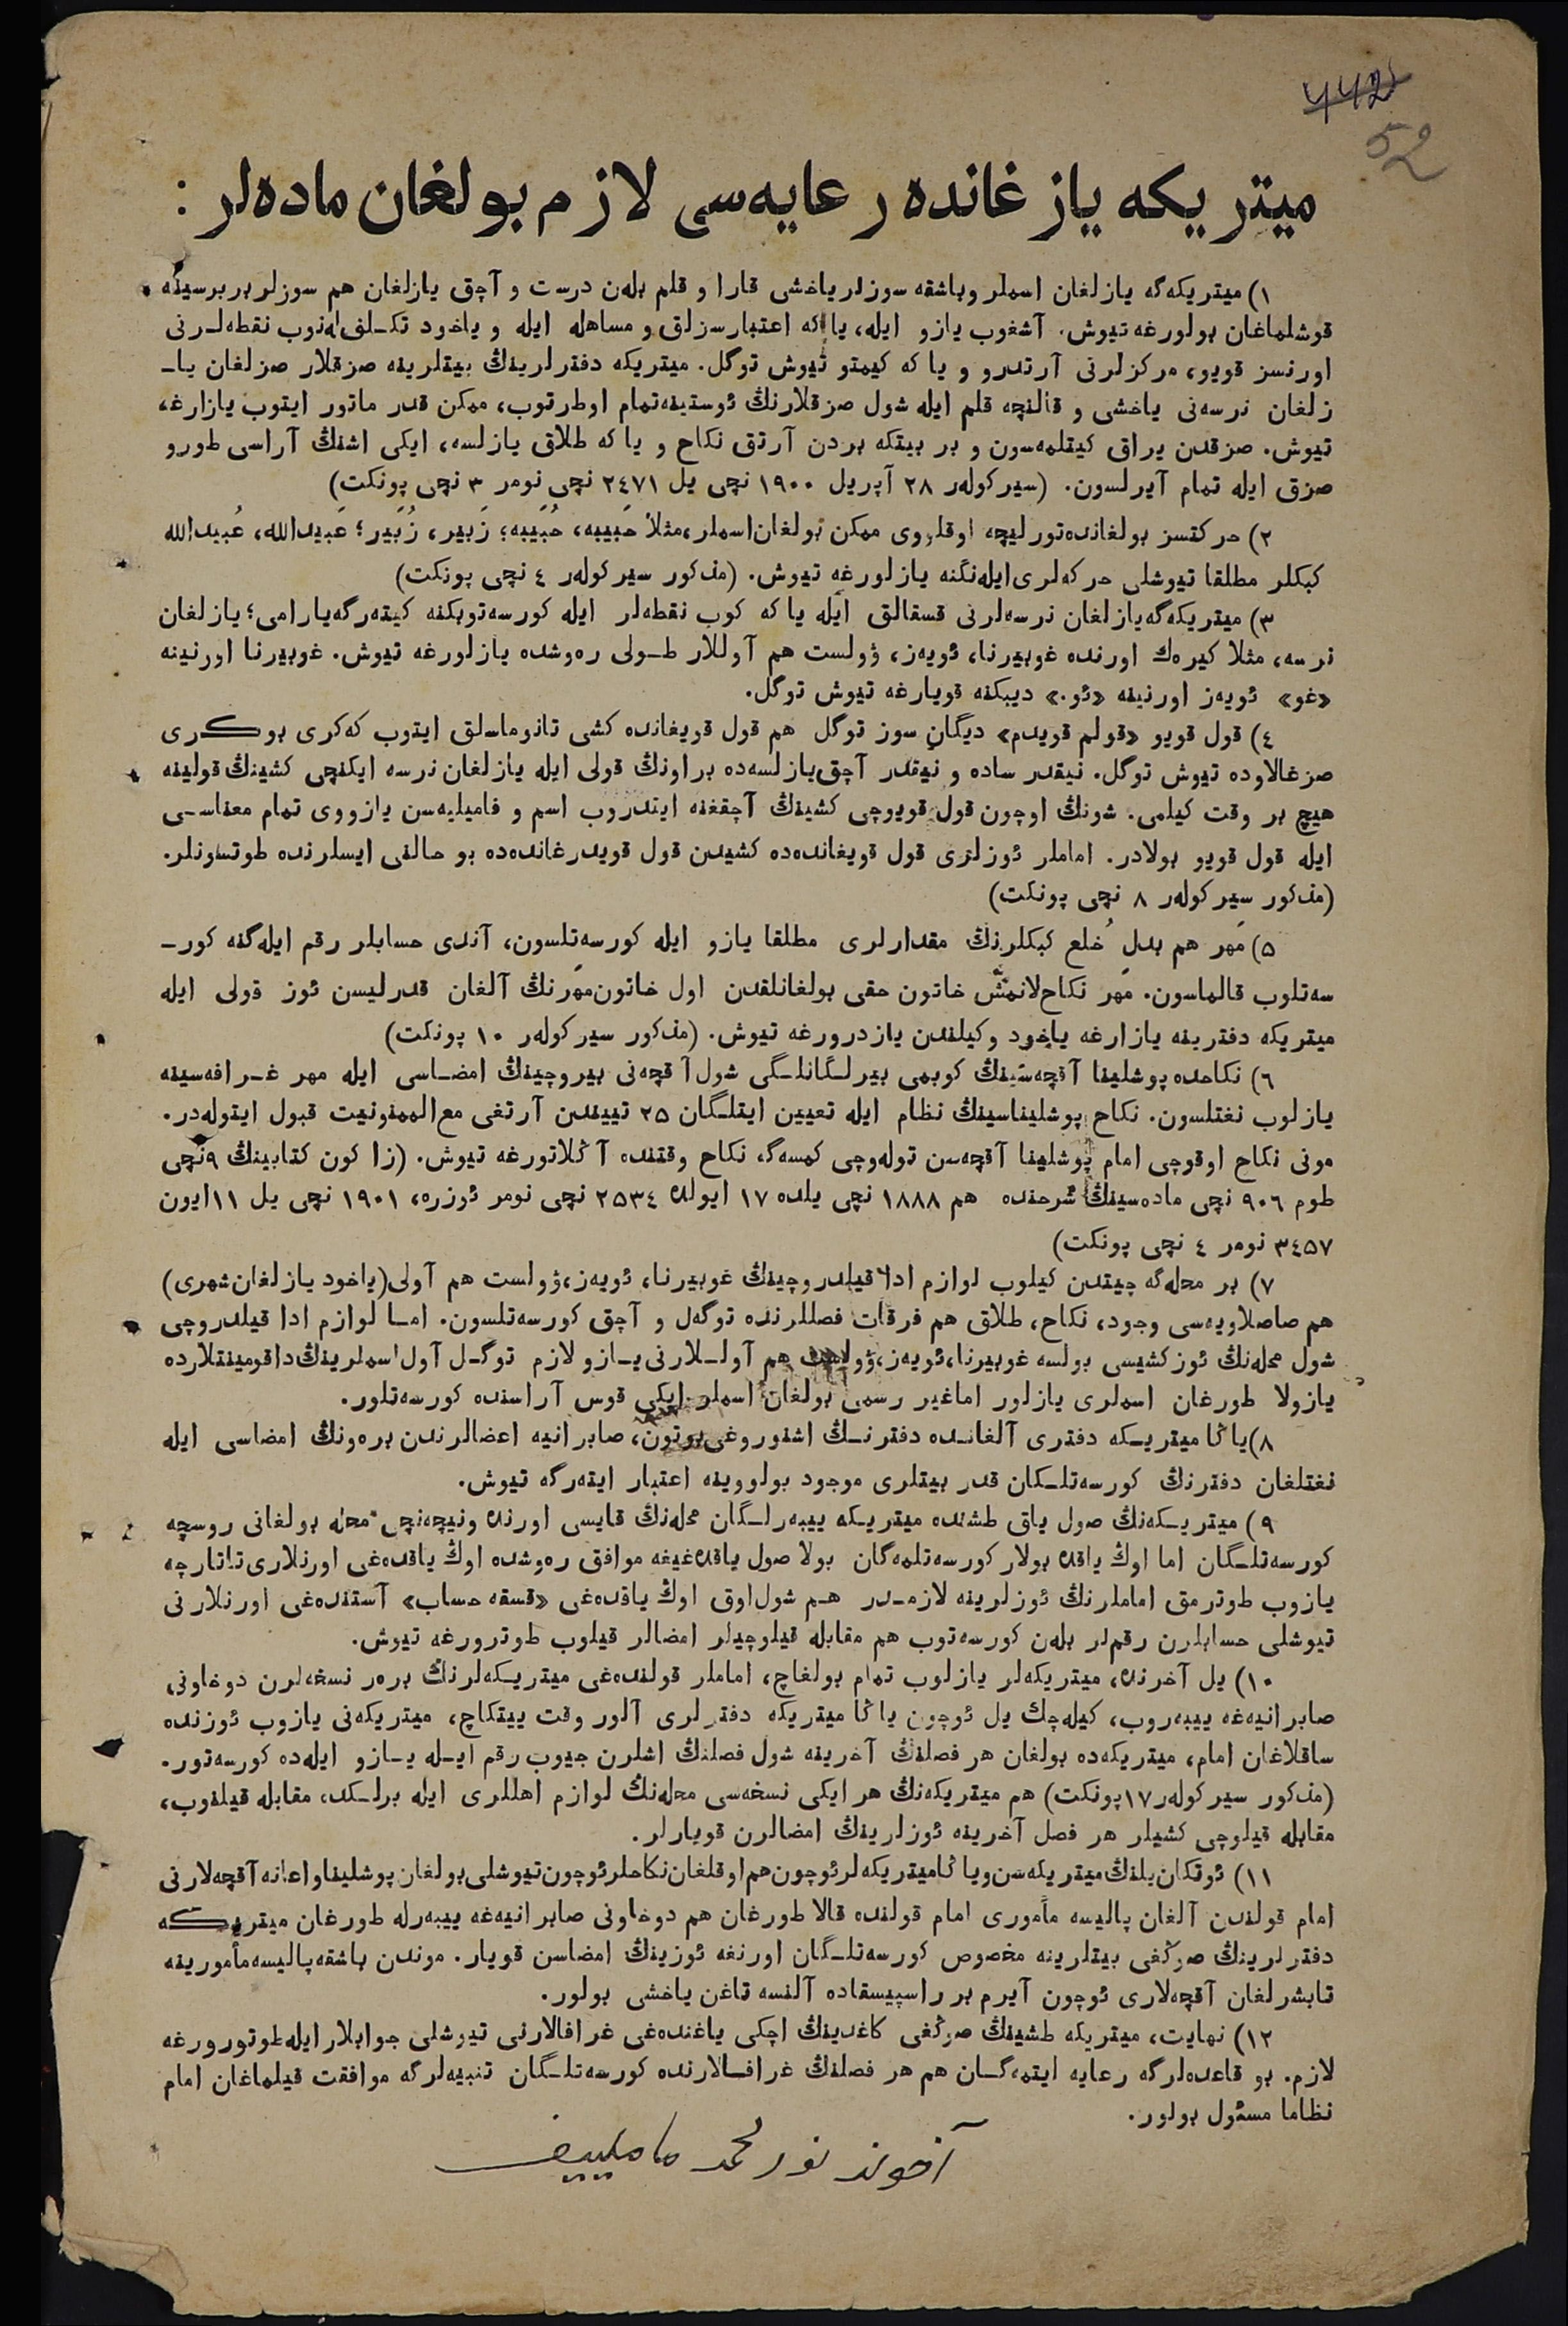 442
52
ميتريكه يازغانده رعايه‌سى لازم بولغان ماده‌لر :
١) ميتريكه‌گه يازلغان اسملر وباشقه سوزلر ياخشى قارا و قلم بله‌ن درست و آچق يازلغان هم سوزلر بربرسينه
قوشلماغان بولورغه تيوش. آشغوب يازو ايله، ياكه اعتبارسزلق و مساهله ايله و ياخود تكـلف له‌نوب نقطه‌لـرنى
اورنسز قويو، مركزلرنى آرتدرو و ياكه كيمتو تيوش توگل. ميتريكه دفترلرينڭ بيتلرينه صزقلار صزلغان يا‌ـ
زلغان نرسه‌نى ياخشى و قالنچه قلم ايله شول صزقلارنڭ ئوستينه‌تمام اوطرتوب، ممكن قدر ماتور ايتوب يازارغه
تيوش. صزقدن يراق كيتلمه‌سون و بر بيتكه بردن آرتق نكاح و ياكه طلاق يازلسه، ايكى اشنڭ آراسى طورو
صزق ايله تمام آيرلسون. (سيركوله‌ر ٢٨ آپريل ١٩٠٠ نچى يل ٢٤٧١ نچى نومر ٣ نچى پونكت)
٢) حركتسز بولغانده‌تورليچه اوقلووى ممكن بولغان‌اسملر،مثلاً حَبيبه، حُبَيبه؛ زَبير، زُبَير؛ عَبيدالله، عُبيدالله
كبكلر مطلقا تيوشلى حركه‌لرى‌ايله‌نگنه يازلورغه تيوش. (مذكور سيركوله‌ر ٤ نچى پونكت)
٣) ميتريكه‌گه‌يازلغان نرسه‌لرنى قسقالق ايله ياكه كوب نقطه‌لر ايله كورسه‌توبكنه كيته‌رگه‌يارامى؛ يازلغان
نرسه، مثلا كيره‌ك اورنده غوبيرنا، ئويه‌ز، ۋولست هم آوللار طـولى ره‌وشده يازلورغه تيوش. غوبيرنا اورنينه
«غو» ئويه‌ز اورنينه «ئو.» ديبكنه قويارغه تيوش توگل.
٤) قول قويو «قولم قويدم» ديگان سوز توگل هم قول قويغانده كشى تانوماسلق ايتوب كه‌كرى بوكـرى
صزغالاوده تيوش توگل. نيقدر ساده و نيقدر آچق‌يازلسه‌ده براونڭ قولى ايله يازلغان نرسه ايكنچى كشينڭ قولينه
هيچ بر وقت كيلمى. شونڭ اوچون قول قويوچى كشينڭ آچقغنه ايتدروب اسم و فاميليه‌سن يازووى تمام معناسـى
ايله قول قويو بولادر. اماملر ئوزلرى قول قويغانده‌ده كشيدن قول قويدرغانده‌ده بو حالنى ايسلرنده طوتسونلر.
(مذكور سيركوله‌ر ٨ نچى پونكت)
٥) مَهر هم بدل خُلع كبكلرنڭ مقدارلرى مطلقا يازو ايله كورسه‌تلسون، آندى حسابلر رقم ايله‌گنه كور‌ـ
سه‌تلوب قالماسون. مَهر نكاح‌لانمش خاتون حقى بولغانلقدن اول خاتون‌مَهرنڭ آلغان قدرليسن ئوز قولى ايله
ميتريكه دفترينه يازارغه ياخود وكيلندن يازدرورغه تيوش. (مذكور سيركوله‌ر ١٠ پونكت)
٦) نكاحده پوشلينا آقچه‌سينڭ كوبمى بيرلـگانلـگى شول آقچه‌نى بيروچينڭ امضـاسى ايله مهر غـرافه‌سينه
يازلوب نغتلسون. نكاح پوشليناسينڭ نظام ايله تعيين ايتلـگان ٢٥ تييندن آرتغى مع‌الممنونيت قبول ايتوله‌در.
مونى نكاح اوقوچى امام پوشلينا آقچه‌سن توله‌وچى كمسه‌گه نكاح وقتنده آڭلاتورغه تيوش. (زاكون كتابينڭ ٩نچى
طوم ٩٠٦ نچى ماده‌سينڭ شرحنده هم ١٨٨٨ نچى يلده ١٧ ايولده ٢٥٣٤ نچى نومر ئوزره، ١٩٠١ نچى يل ١١ايون
٣٤٥٧ نومر ٤ نچى پونكت)
٧) بر محله‌گه چيتدن كيلوب لوازم ادا قيلدروچينڭ غوبيرنا، ئويه‌ز،ۋولست هم آولى(ياخود يازلغان‌شهرى)
هم صاصلاويه‌سى وجود، نكاح، طلاق هم فرقات فصللرنده توگه‌ل و آچق كورسه‌تلسون. امـا لوازم ادا قيلدروچى
شول محله‌نڭ ئوزكشيسى بولسه غوبيرنا،ئويه‌ز،ۋولست هم آولـلارنى يـازو لازم توگـل آول‌اسملرينڭ‌داقومينتلارده
يازولا طورغان اسملرى يازلور اماغير رسمى بولغان اسملر ايكى قوس آراسنده كورسه‌تلور.
٨)ياڭا ميتريـكه دفترى آلغانـده دفترنـڭ اشنوروغى‌بوتون، صابرانيه اعضالرندن بره‌ونڭ امضاسى ايله
نغتلغان دفترنڭ كورسه‌تلـكان قدر بيتلرى موجود بولووينه اعتبار ايته‌رگه تيوش.
٩) ميتريـكه‌نڭ صول ياق طشنده ميتريكه ييبه‌رلـگان محله‌نڭ قايسى اورنده ونيچه‌نچى محله بولغانى روسچه
كورسه‌تلـگان اما اوڭ ياقده بولار كورسه‌تلمه‌گان بولا صول ياقده‌غيغه موافق ره‌وشده اوڭ ياقده‌غى اورنلارى‌تاتارچه
يازوب طوترمق اماملرنڭ ئوزلرينه لازمـدر هـم شول‌اوق اوڭ ياقده‌غى «قسقه حساب» آستنده‌غى اورنلارنى
تيوشلى حسابلرن رقم‌لر بله‌ن كورسه‌توب هم مقابله قيلوچيلر امضالر قيلوب طوترورغه تيوش.
١٠) يل آخرنده، ميتريكه‌لر يازلوب تمام بولغاچ، اماملر قولنده‌غى ميتريـكه‌لرنڭ بره‌ر نسخه‌لرن دوخاونى
صابرانيه‌غه ييبه‌روب، كيله‌چك يل ئوچون ياڭا ميتريكه دفترلرى آلور وقت ييتكاچ، ميتريكه‌نى يازوب ئوزنده
ساقلاغان امام، ميتريكه‌ده بولغان هر فصلنڭ آخرينه شول فصلنڭ اشلرن جيوب رقم ايـله يـازو ايله‌ده كورسه‌تور.
(مذكور سيركوله‌ر١٧پونكت) هم ميتريكه‌نڭ هر ايكى نسخه‌سى محله‌نڭ لوازم اهللرى ايله برلـكده مقابله قيلنوب،
مقابله قيلوچى كشيلر هر فصل آخرينه ئوزلرينڭ امضالرن قويارلر.
١١) ئوتكان‌يلنڭ‌ميتريكه‌سن‌وياڭاميتريكه‌لرئوچون‌هم‌اوقلغان‌نكاحلرئوچون‌تيوشلى‌بولغان‌پوشليناواعانه‌آقچه‌لارنى
امام قولندن آلغان پاليسه مأمورى امام قولنده قالا طورغان هم دوخاونى صابرانيه‌غه ييبه‌رله طورغان ميتريـكه
دفترلرينڭ صوڭغى بيتلرينه مخصوص كورسه‌تلـگان اورنغه ئوزينڭ امضاسن قويار. موندن باشقه‌پاليسه‌مأمورينه
تابشرلغان آقچه‌لارى ئوچون آيرم بر راسپيسقاده آلنسه تاغن ياخشى بولور.
١٢) نهايت، ميتريكه طشينڭ صوڭغى كاغدينڭ اچكى ياغنده‌غى غرافالارنى تيوشلى جوابلارايله‌طوتورورغه
لازم. بو قاعده‌لرگه رعايه ايتمه‌گـان هم هر فصلنڭ غرافـالارنده كورسه‌تلـگان تنبيه‌لرگه موافقت قيلماغان امام
نظاما مسئول بولور.
آخوند نورمحمد مامليیف